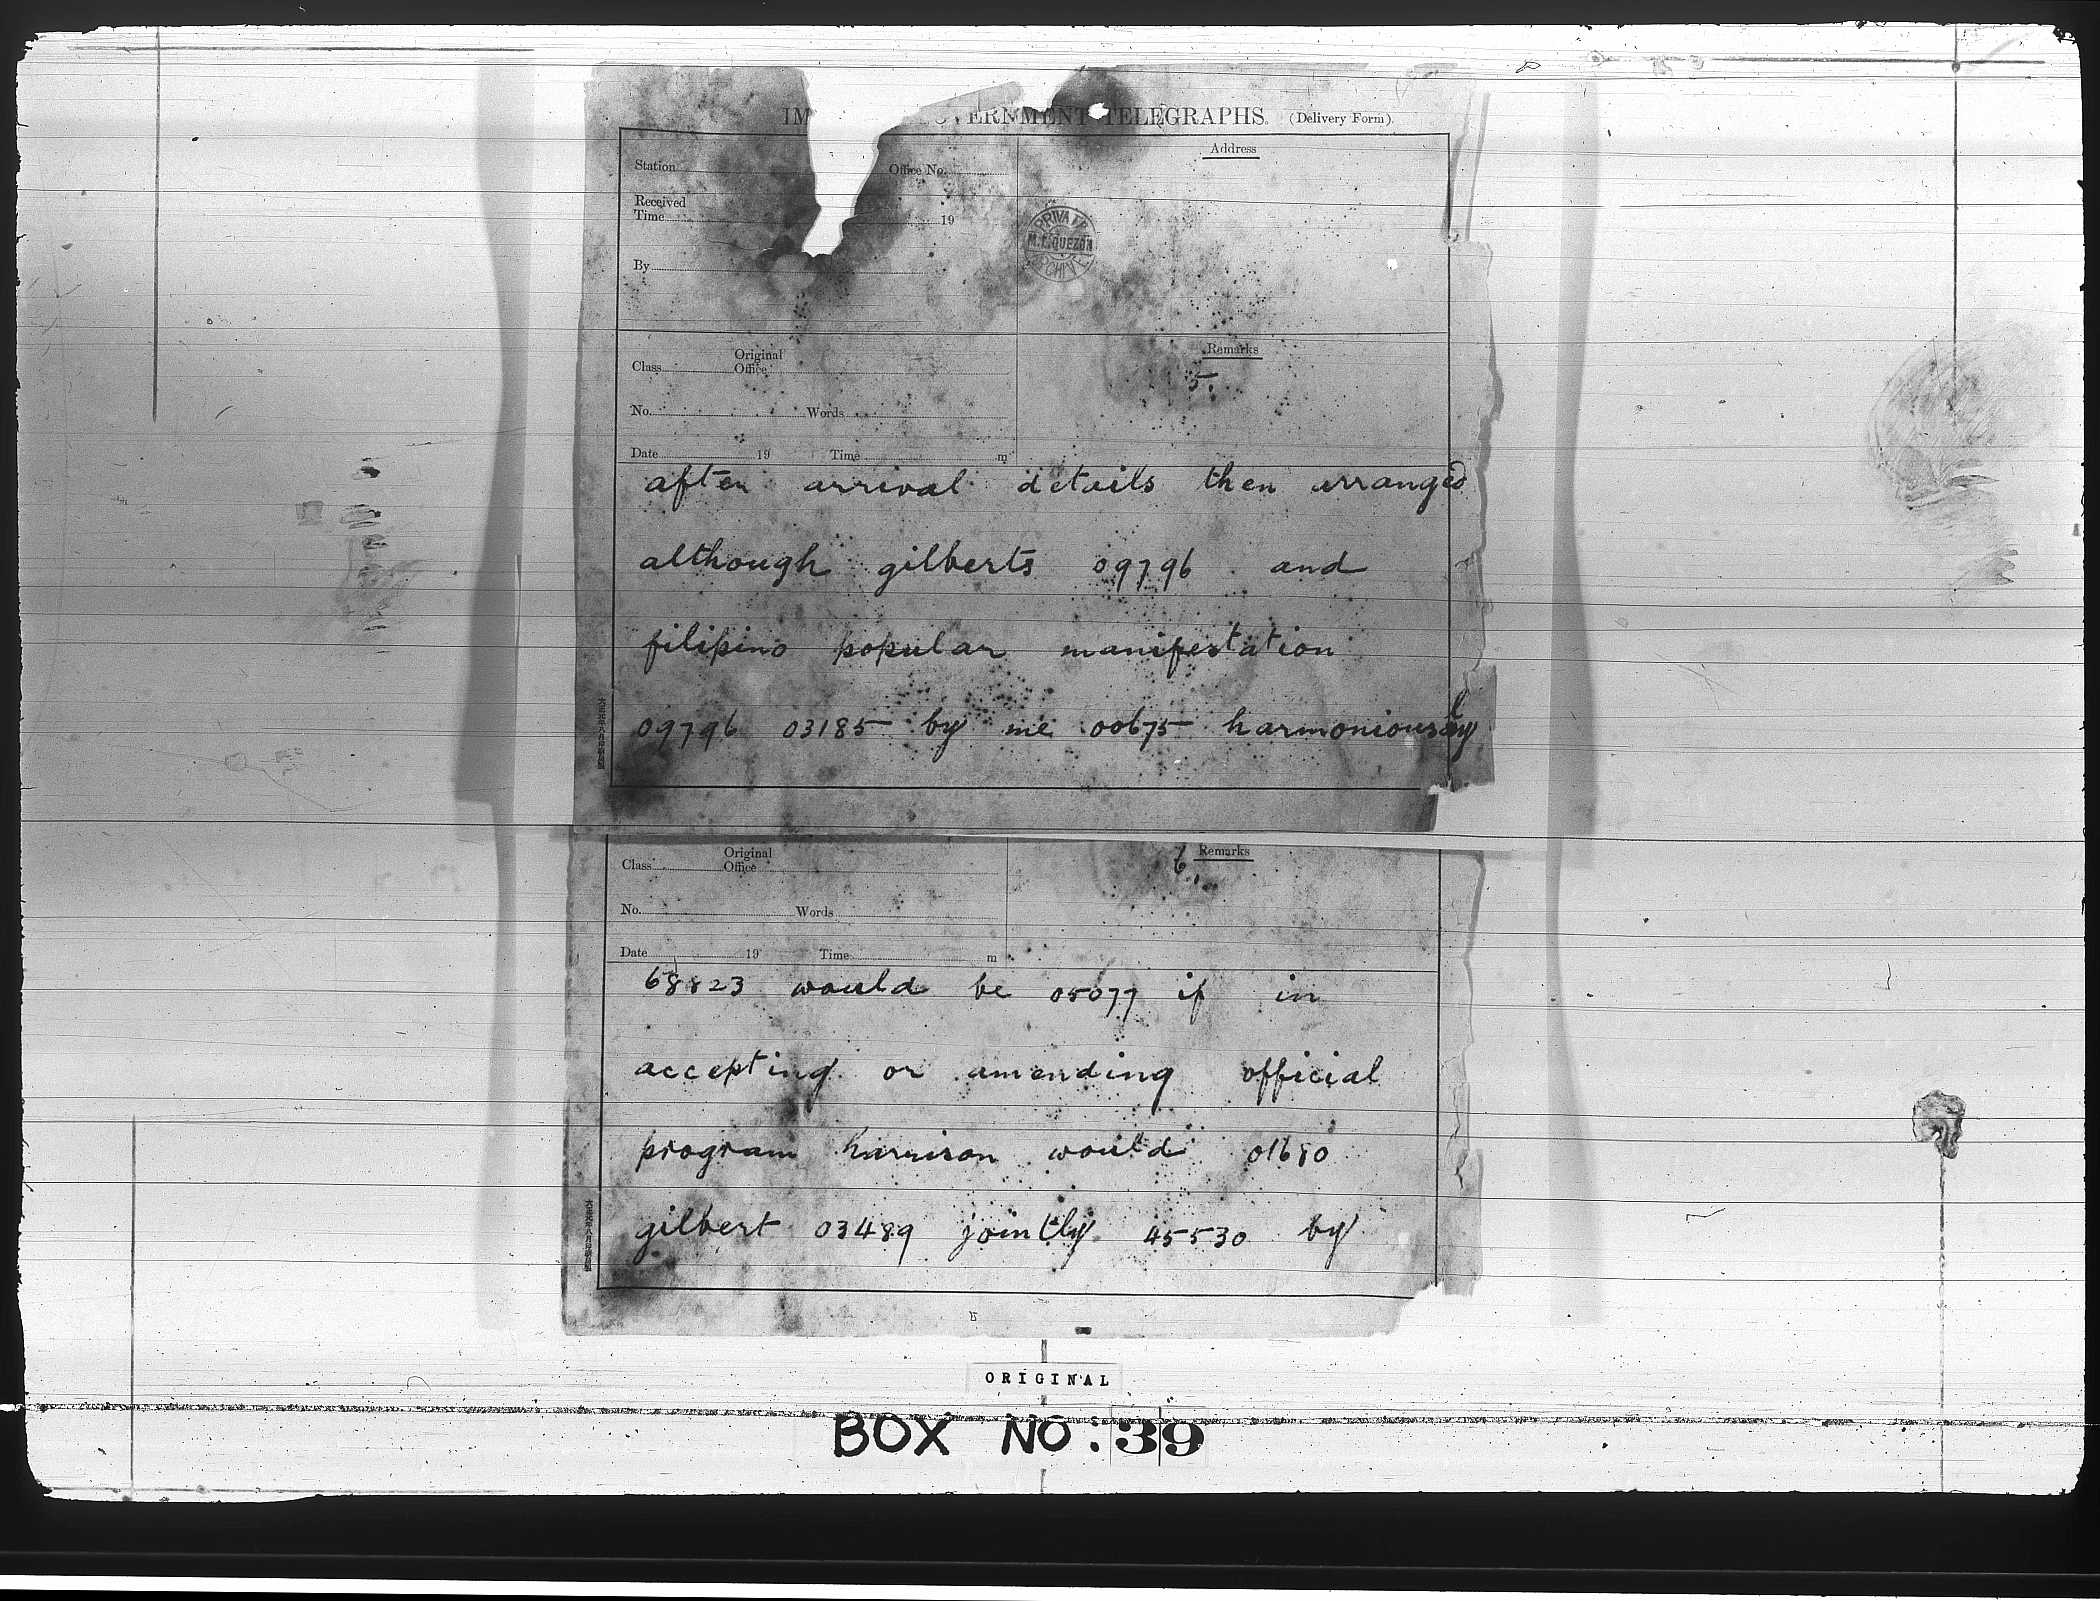 GOVERNMENT TELEGRAPHS. (Delivery Form).
Station Office No.
Address
Received
Time 19
PRIVATE
M.L. QUEZON
ARCHIVE
By
Original
Class Office
Remarks
5.
No. Words
Date 19 Time m
after arrival details then arranged
although gilberts 09796 and
filipino popular manifestation
09796 03185 by me 00675 harmoniously
Original
Class Office
Remarks
6.
No. Words
Date 19 Time m
68823 would be 05077 if in
accepting or amending official
program harrison would 01680
gilbert 03489 jointly 45530 by
ORIGINAL
BOX NO: 39